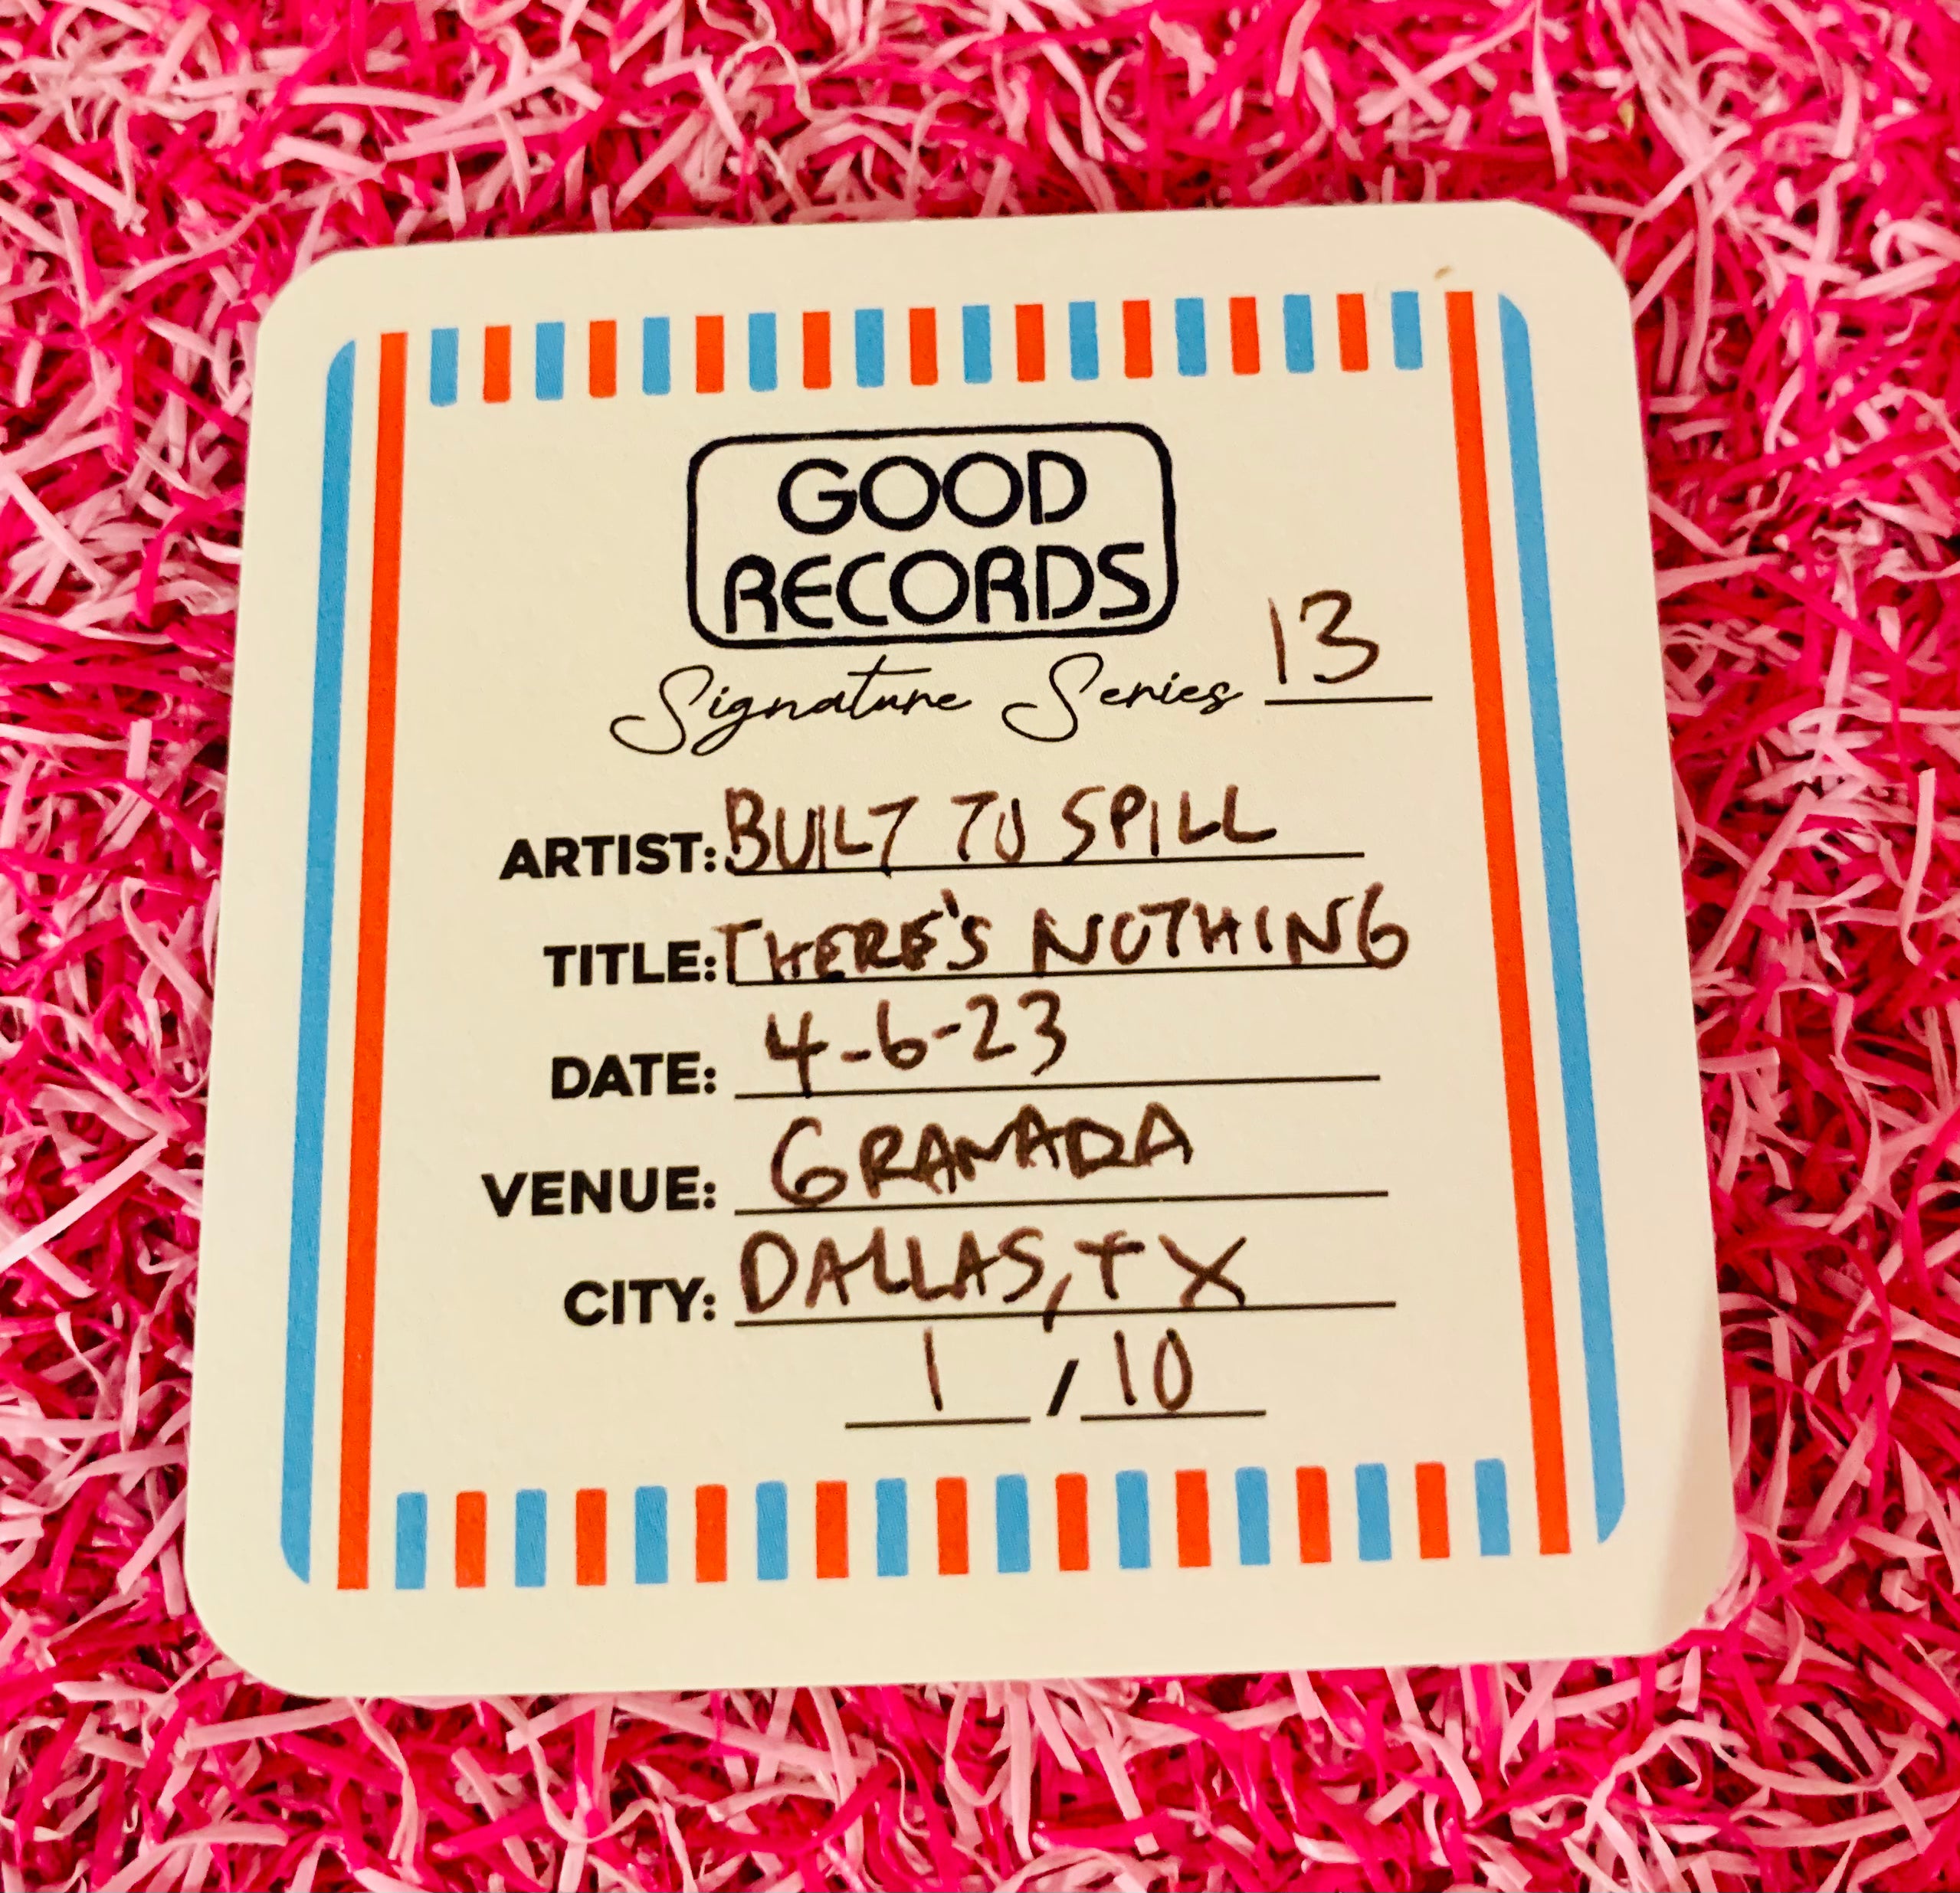 GOOD
RECORDS
Signature Series 13
ARTIST: BUILT TO SPILL
TITLE: THERE'S NOTHING
DATE: 4-6-23
VENUE: GRANADA
CITY: DALLAS, TX
1 / 10